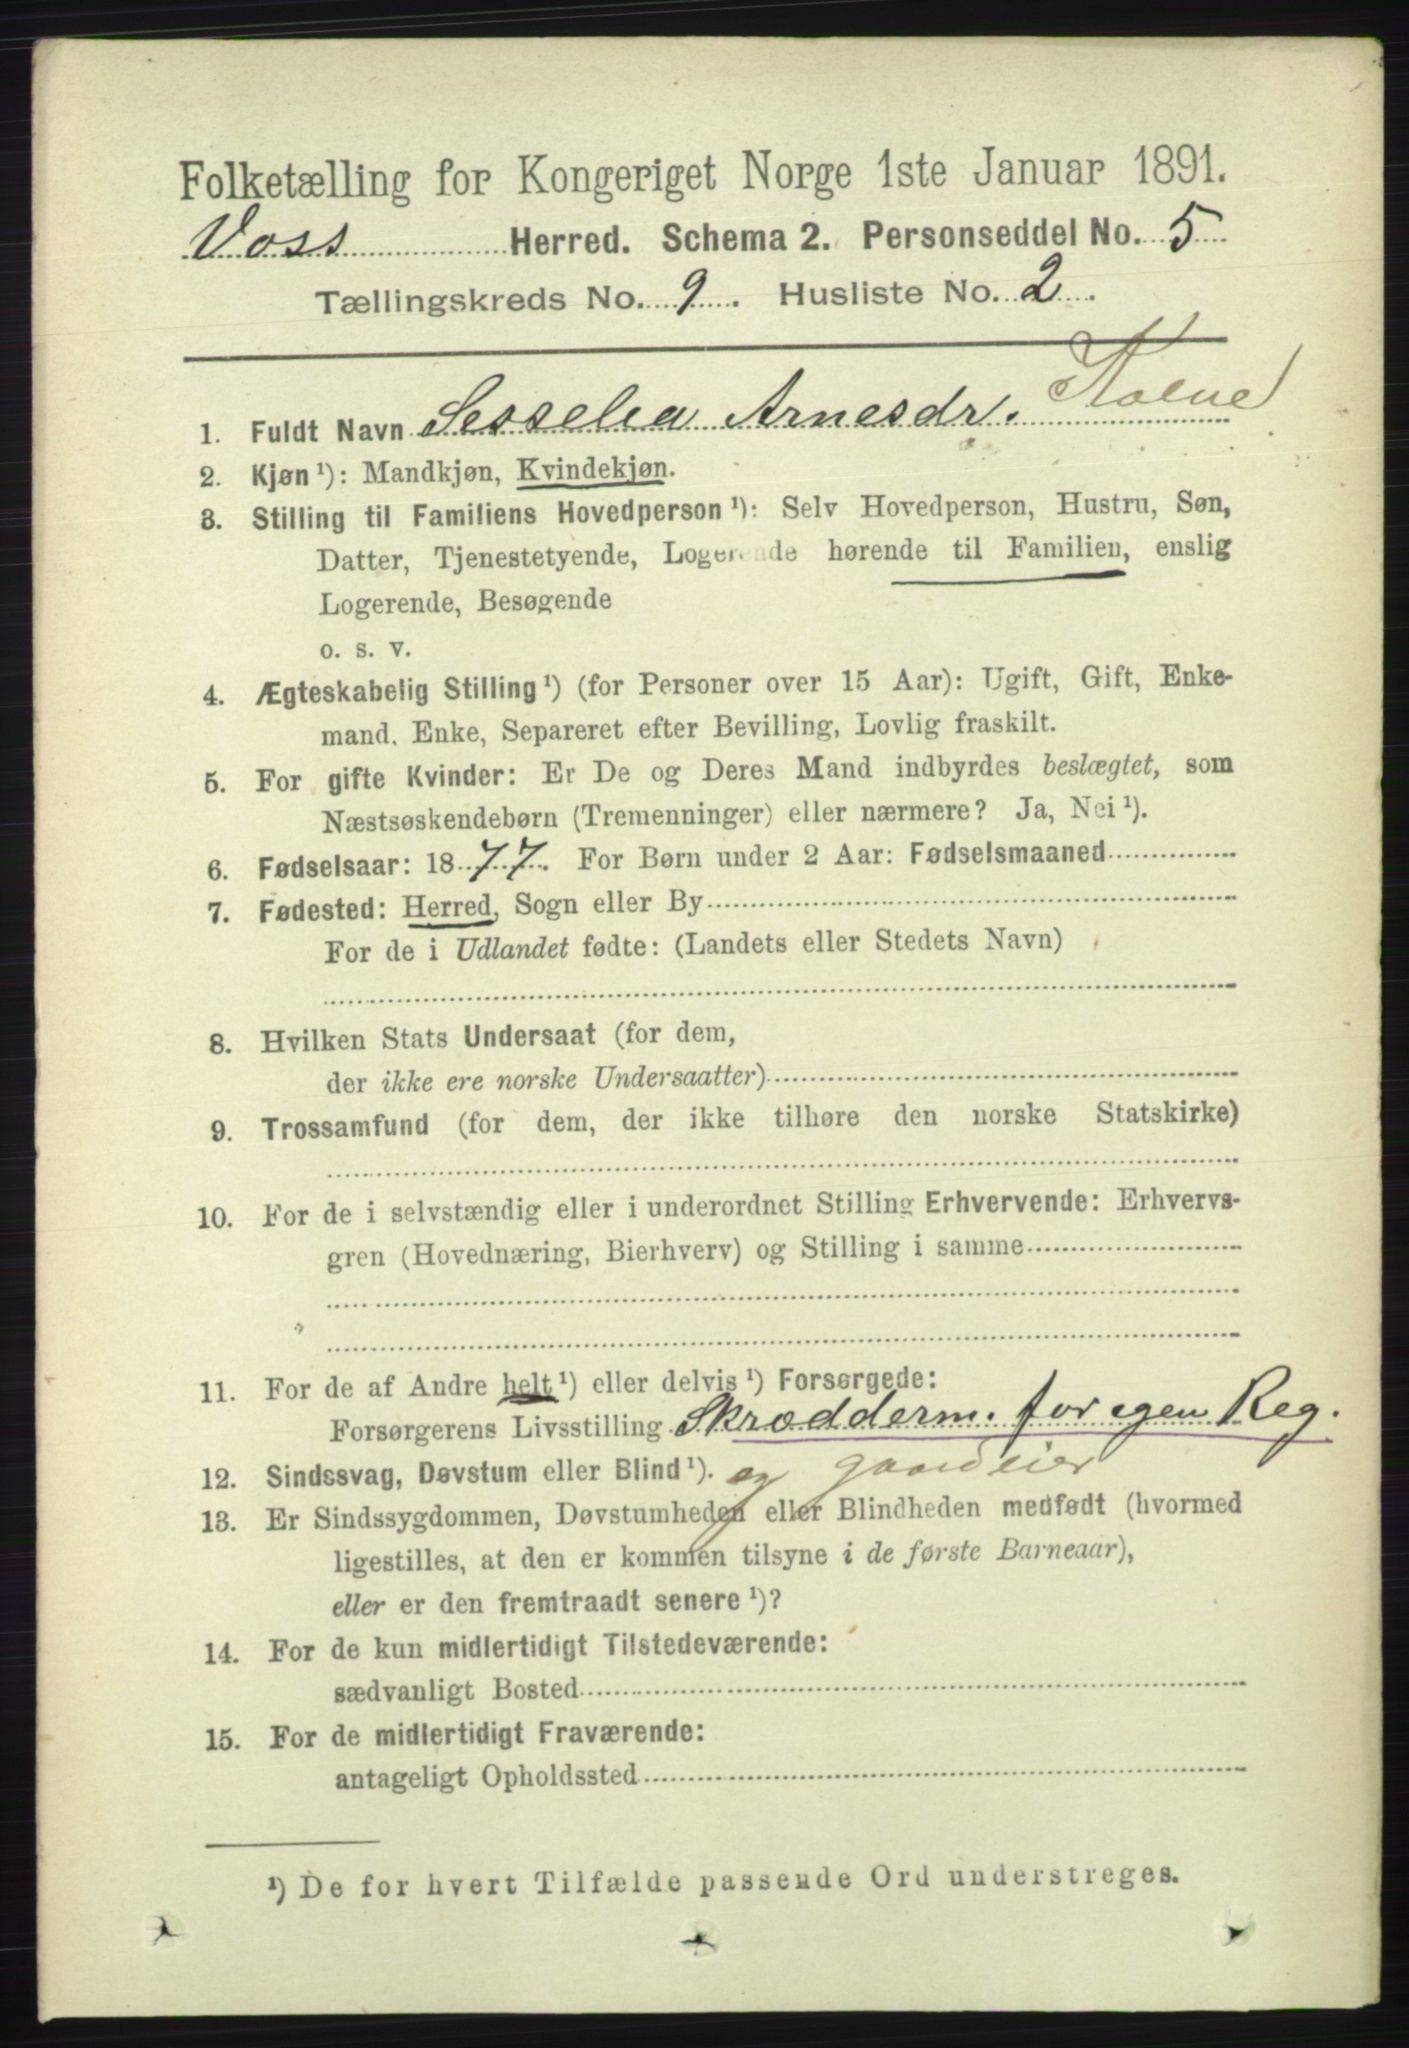 Folketælling for Kongeriget Norge 1ste Januar 1891.
Voss Herred. Schema 2. Personseddel No. 5
Tællingskreds No. 9. Husliste No. 2.
1. Fuldt Navn Sesselia Arnesdr.
2. Kjøn ¹): Mandkjøn, Kvindekjøn.
3. Stilling til Familiens Hovedperson ¹): Selv Hovedperson, Hustru, Søn,
Datter, Tjenestetyende, Logerende hørende til Familien, enslig
Logerende, Besøgende
o. s. v.
4. Ægteskabelig Stilling ¹) (for Personer over 15 Aar): Ugift, Gift, Enke-
mand, Enke, Separeret efter Bevilling, Lovlig fraskilt.
5. For gifte Kvinder: Er De og Deres Mand indbyrdes beslægtet, som
Næstsøskendebørn (Tremenninger) eller nærmere? Ja, Nei ¹).
6. Fødselsaar: 1877. For Børn under 2 Aar: Fødselsmaaned
7. Fødested: Herred, Sogn eller By
For de i Udlandet fødte: (Landets eller Stedets Navn)
8. Hvilken Stats Undersaat (for dem,
der ikke ere norske Undersaatter)
9. Trossamfund (for dem, der ikke tilhøre den norske Statskirke)
10. For de i selvstændig eller i underordnet Stilling Erhvervende: Erhvervs-
gren (Hovednæring, Bierhverv) og Stilling i samme
11. For de af Andre helt ¹) eller delvis ¹) Forsørgede:
Forsørgerens Livsstilling Skrædderm. for egen Reg.
12. Sindssvag, Døvstum eller Blind ¹). og gaardeier
13. Er Sindssygdommen, Døvstumheden eller Blindheden medfødt (hvormed
ligestilles, at den er kommen tilsyne i de første Barneaar),
eller er den fremtraadt senere ¹)?
14. For de kun midlertidigt Tilstedeværende:
sædvanligt Bosted
15. For de midlertidigt Fraværende:
antageligt Opholdssted
¹) De for hvert Tilfælde passende Ord understreges.